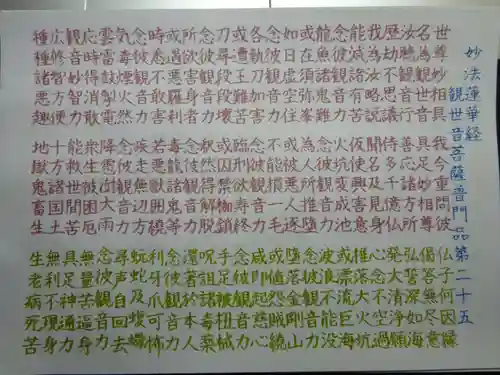 妙法蓮華経
観世音菩薩普門品第二十五
世尊妙相具 我今重問彼 仏子何因縁
名為観世音 具足妙相尊 偈答無尽意
汝聴観音行 善応諸方所 弘誓深如海
歴劫不思議 侍多千億仏 発大清浄願
我為汝略説 聞名及見身 心念不空過
能滅諸有苦 仮使興害意 推落大火坑
念彼観音力 火坑変成池 或漂流巨海
龍魚諸鬼難 念彼観音力 波浪不能没
或在須弥峯 為人所推堕 念彼観音力
如日虚空住 或被悪人逐 堕落金剛山
念彼観音力 不能損一毛 或値怨賊繞
各執刀加害 念彼観音力 咸即起慈心
或遭王難苦 臨刑欲寿終 念彼観音力
刀尋段段壊 或囚禁枷鎖 手足被杻械
念彼観音力 釈然得解脱 呪詛諸毒薬
所欲害身者 念彼観音力 還著於本人
或遇悪羅刹 毒龍諸鬼等 念彼観音力
時悉不敢害 若悪獣囲繞 利牙爪可怖
念彼観音力 疾走無辺方 蚖蛇及蝮蠍
気毒煙火燃 念彼観音力 尋声自回去
雲雷鼓掣電 降雹澍大雨 念彼観音力
応時得消散 衆生被困厄 無量苦逼身
観音妙智力 能救世間苦 具足神通力
広修智方便 十方諸国土 無刹不現身
種種諸悪趣 地獄鬼畜生 生老病死苦